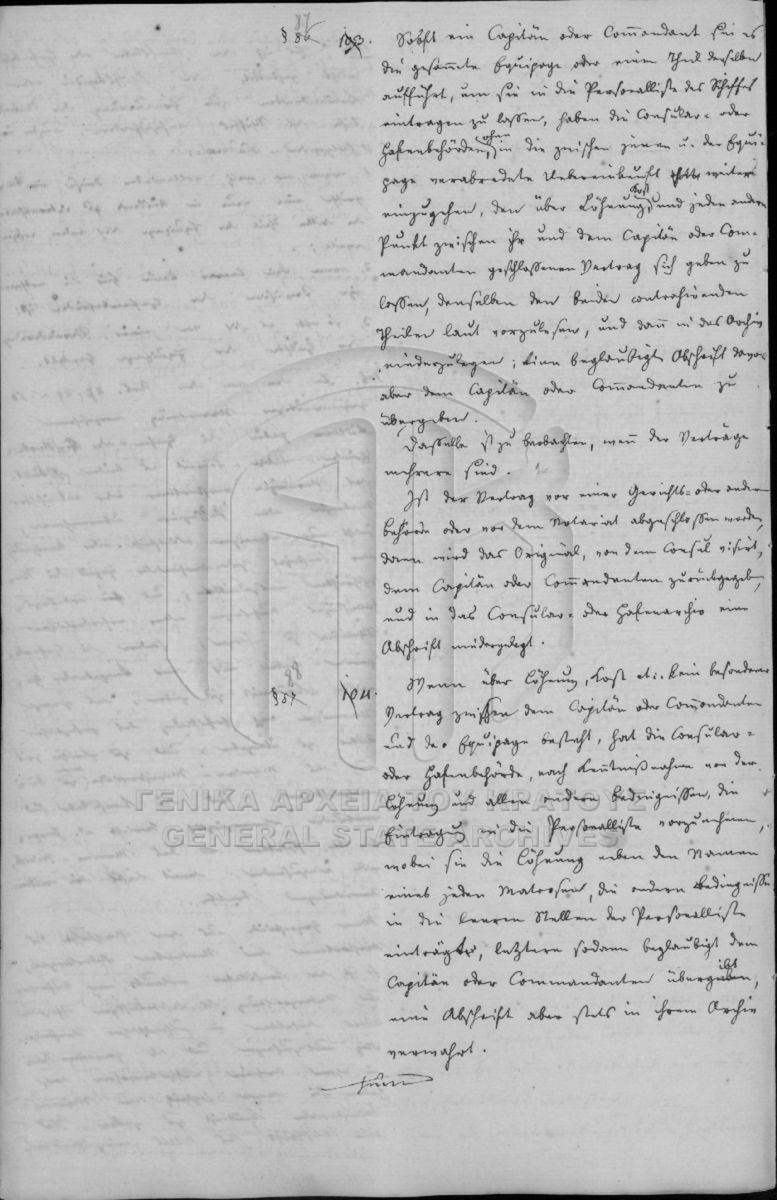 87
§ 86 103. Sobald ein Capitän oder Commandant sei es
die gesammte Equipage oder einen Theil derselben
aufführt, um sie in die Personalliste des Schiffes
eintragen zu lassen, haben die Consular- oder
Hafenbehörden, ohne in die zwischen jenen u. der Equi-
page verabredete Uebereinkunft weiter
einzugehen, den über Löhnung, Kost und jeden andern
Punkt zwischen ihr und dem Capitän oder Com-
mandanten geschlossenen Vertrag sich geben zu
lassen, denselben den beiden contrahirenden
Theilen laut vorzulesen, und dann in das Archiv
niederzulegen; eine beglaubigte Abschrift davon
aber dem Capitän oder Commandanten zu
übergeben.
Dasselbe ist zu beobachten, wenn der Verträge
mehrere sind.
Ist der Vertrag vor einer Gerichts- oder andern
Behörde oder vor dem Notariat abgeschlossen worden,
dann wird das Original, von dem Consul visirt,
dem Capitän oder Commandanten zurückgegeben,
und in das Consular- oder Hafenarchiv eine
Abschrift niedergelegt.
88
§ 87 104. Wenn über Löhnung, Kost etc. kein besonderer
Vertrag zwischen dem Capitän oder Commandanten
und der Equipage besteht, hat die Consular-
oder Hafenbehörde, nach Kenntnißnahme von der
Löhnung und allen andern Bedingnissen, die
Eintragung in die Personalliste vorzunehmen,
wobei sie die Löhnung neben den Namen
eines jeden Matrosen, die andern Bedingnisse
in die leeren Stellen der Personalliste
einträgt, letztere sodann beglaubigt dem
Capitän oder Commandanten übergibt,
eine Abschrift aber stets in ihrem Archiv
verwahrt.
ΓΕΝΙΚΑ ΑΡΧΕΙΑ ΤΟΥ ΚΡΑΤΟΥΣ
GENERAL STATE ARCHIVES